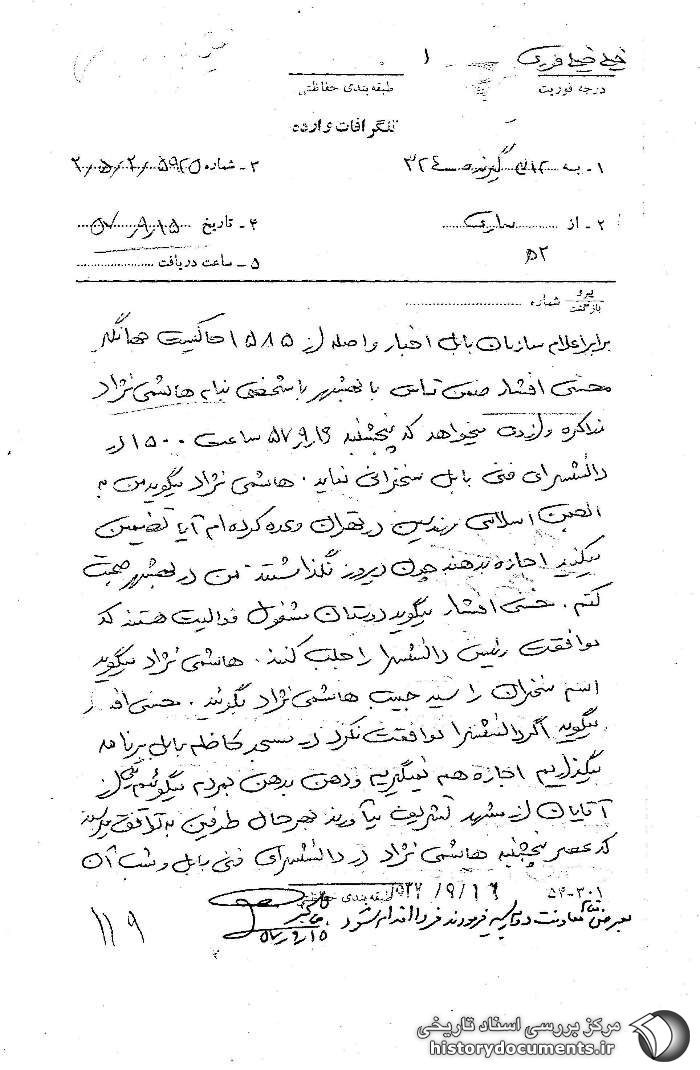 خیلی خیلی فوری
درجه فوریت
طبقه‌بندی حفاظتی
تلگرافات وارده
۱ - به ۳۱۲ گیرنده ۳۲۴
۳ - شماره ۲/۵/۲/۵۹۲۵
۲ - از ساری
۴ - تاریخ ۵۷/۹/۱۵
۵۲
۵ - ساعت دریافت
پیرو
بازگشت
شماره
برابر اعلام سازمان بابل اخبار واصله از ۱۵۸۵ حاکیست
محسنی افشار ضمن تماس با بهشهر با شخصی بنام هاشمی نژاد
مذاکره و از وی میخواهد که پنجشنبه ۵۷/۹/۱۶ ساعت ۱۵۰۰ در
دانشسرای فنی بابل سخنرانی نماید. هاشمی نژاد میگوید من به
انجمن اسلامی مهندسین در تهران وعده کرده ام آیا تضمین
میکنید اجازه بدهند چون دیروز نگذاشتند من در بهشهر صحبت
کنم. محسنی افشار میگوید دوستان مشغول فعالیت هستند که
موافقت رئیس دانشسرا را جلب کنند. هاشمی نژاد میگوید
اسم سخنران را سید حبیب هاشمی نژاد بگوئید. محسنی
میگوید اگر دانشسرا موافقت نکرد در مسجد کاظم بابل برنامه
میگذاریم اجازه هم نمیگیریم و دهن بدهن بمردم میگوئیم یکی از
آقایان از مشهد تشریف میآورند بهرحال طرفین به توافق میرسند
که عصر پنجشنبه هاشمی نژاد در دانشسرای فنی بابل و شب آن
۵۴-۳۰۱
طبقه‌بندی حفاظتی
۹/۱۶
بعرض مقام معاونت فرمودند فردا اقدام شود
۵۷/۹/۱۵
۱۱۹
مرکز بررسی اسناد تاریخی
historydocuments.ir